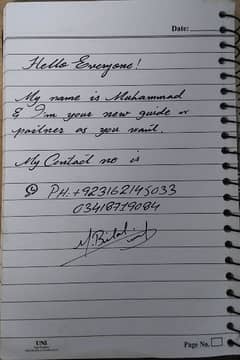 Date:
Hello Everyone!
My name is Muhammad
& I'm your new guide or
partner as you want.
My Contact no is
PH. +923162145033
03418719084
M.Bilal
UNI
Page No.